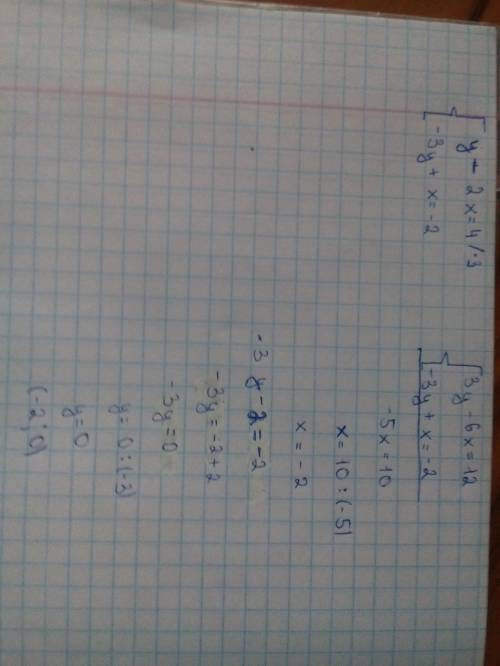 { y - 2x = 4 / ·3
-3y + x = -2
{ 3y - 6x = 12
-3y + x = -2
-5x = 10
x = 10 : (-5)
x = -2
-3y - 2 = -2
-3y = -2 + 2
-3y = 0
y = 0 : (-3)
y = 0
(-2; 0)